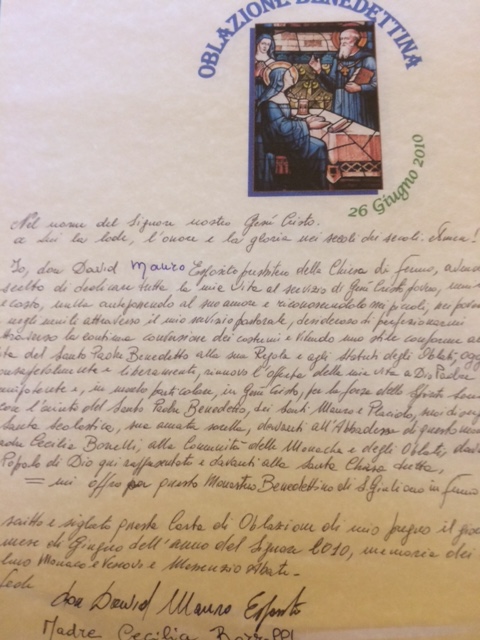 OBLAZIONE BENEDETTINA
26 Giugno 2010
Nel nome del Signore nostro Gesù Cristo.
a Lui la lode, l'onore e la gloria nei secoli dei secoli. Amen!
Io, don David Mauro Esposito presbitero della Chiesa di Fermo, avendo
scelto di dedicare tutta la mia vita al servizio di Gesù Cristo, povero,
e casto, nulla anteponendo al suo amore e riconoscendolo nei piccoli, nei poveri
negli umili attraverso il mio servizio pastorale, desideroso di perfezionarmi
attraverso la continua conversione dei costumi e vivendo uno stile conforme alla
vita del Santo Padre Benedetto alla sua Regola e agli Statuti degli Oblati, oggi
consapevolmente e liberamente, rinnovo l'offerta della mia vita a Dio Padre
onnipotente e, in modo particolare, in Gesù Cristo, per la forza dello Spirito
con l'aiuto del Santo Padre Benedetto, dei Santi Mauro e Placido, suoi
Santa Scolastica, sua amata sorella, davanti all'Abbadessa di questo
Madre Cecilia Bonelli, alla Comunità delle Monache e degli Oblati,
Popolo di Dio qui rappresentato e davanti alla Santa Chiesa tutta,
= mi offro per questo Monastero Benedettino di S. Giuliano in Fermo
scritto e siglato questa Carta di Oblazione di mio pugno il
mese di Giugno dell'anno del Signore 2010, memoria dei
Monaco e Vescovo e Abate.
fede
don David Mauro Esposito
Madre Cecilia